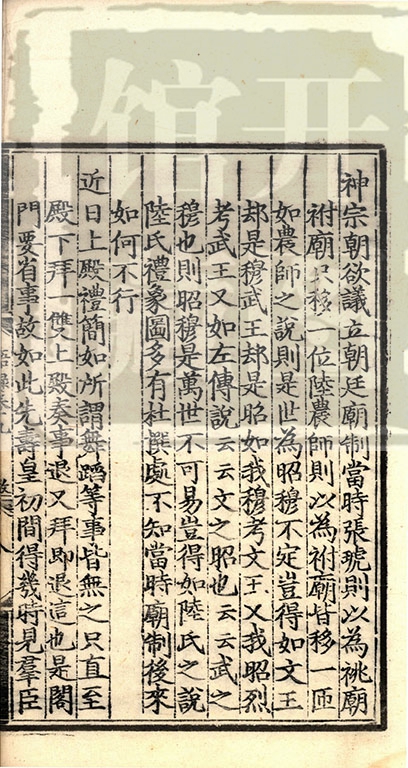 神宗朝欲議立朝廷廟制當時張琥則以為祧廟
祔廟只移一位陸農師則以為祔廟皆移一匝
如農師之說則是世為昭穆不定豈得如文王
却是穆武王却是昭如我穆考文王又我昭烈
考武王又如左傳說云云文之昭也云云武之
穆也則昭穆是萬世不可易豈得如陸氏之說
陸氏禮象圖多有杜撰處不知當時廟制後來
如何不行
近日上殿禮簡如所謂舞蹈等事皆無之只直至
殿下拜一雙上殿奏事退又拜即退這也是閤
門要省事故如此先壽皇初間得幾時見羣臣